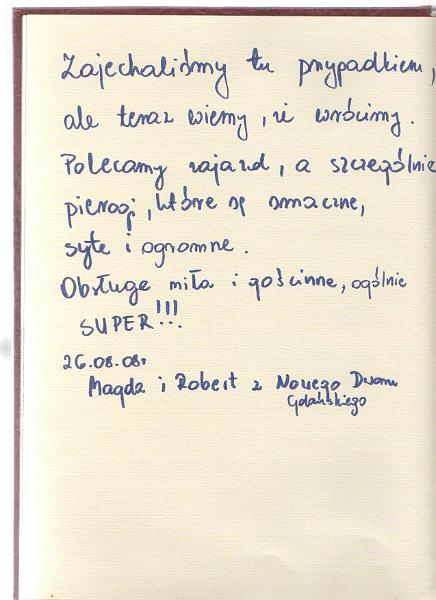 Zajechaliśmy tu przypadkiem,
ale teraz wiemy, że wrócimy.
Polecamy zajazd, a szczególnie
pierogi, które są smaczne,
syte i ogromne.
Obsługa miła i gościnna, ogólnie
SUPER!!!
26.08.08r
Magda i Robert z Nowego Dworu
Gdańskiego